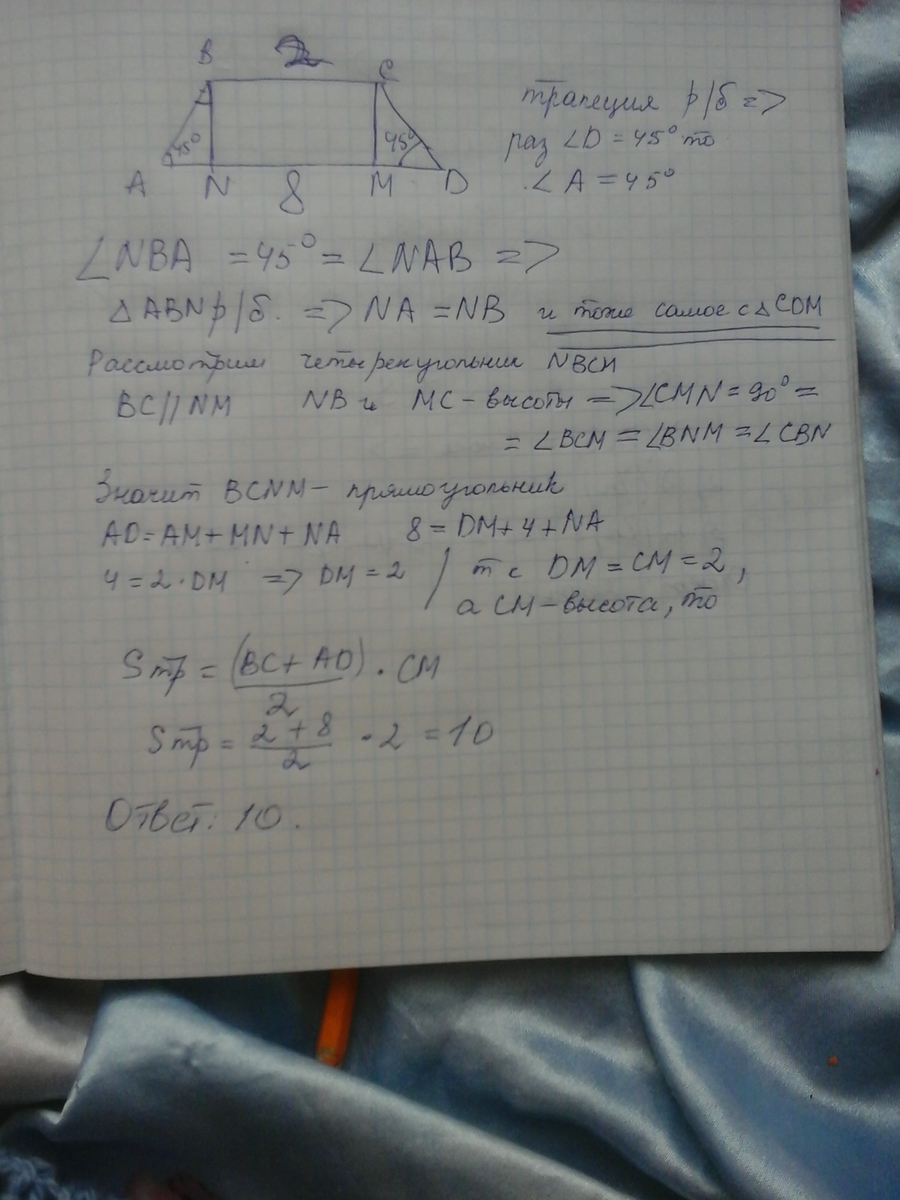 B 2 C
45° 45°
A N 8 M D
трапеция р/б =>
раз ∠D = 45° то
∠A = 45°
∠NBA = 45° = ∠NAB =>
△ABN р/б. => NA = NB и тоже самое с △CDM
Рассмотрим четырехугольник NBCM
BC//NM NB и MC - высоты => ∠CMN = 90° =
= ∠BCM = ∠BNM = ∠CBN
Значит BCNM - прямоугольник
AD = AM + MN + NA 8 = DM + 4 + NA
4 = 2 · DM => DM = 2 / т с DM = CM = 2,
а CM - высота, то
Sтр = (BC + AD)/2 · CM
Sтр = 2 + 8/2 · 2 = 10
Ответ: 10.